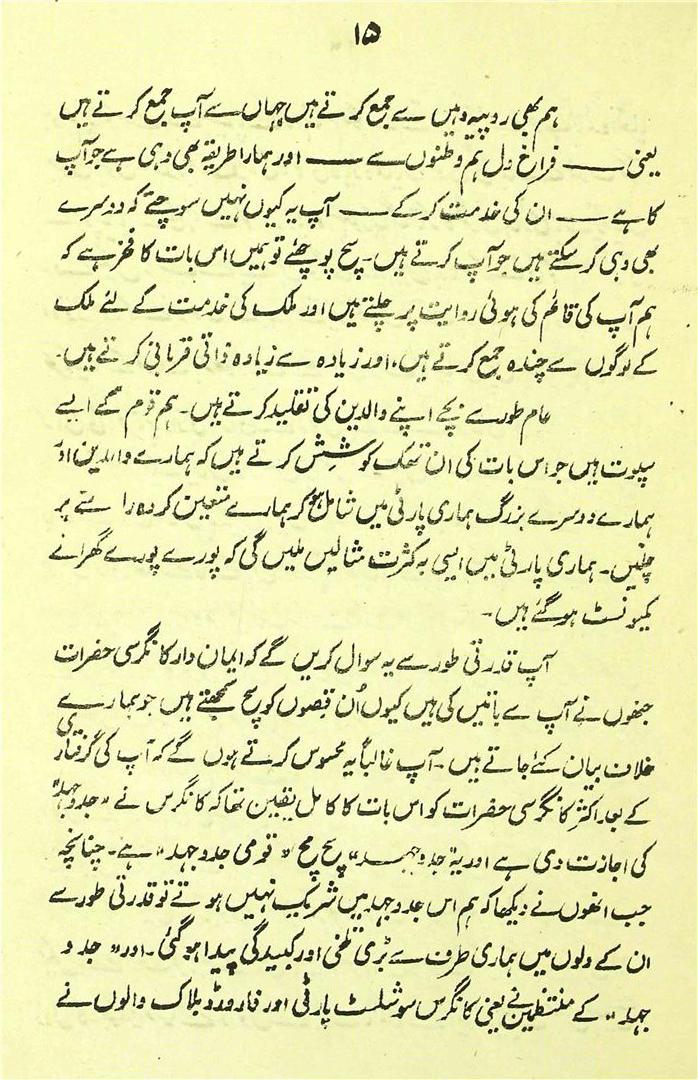 ۱۵
ہم بھی روپیہ وہیں سے جمع کرتے ہیں جہاں سے آپ جمع کرتے ہیں
یعنی ـــــ فراغ دل ہم وطنوں سے ـــــ اور ہمارا طریقہ بھی وہی ہے جو آپ
کا ہے ـــــ ان کی خدمت کر کے ـــــ آپ یہ کیوں نہیں سوچتے کہ دوسرے
بھی وہی کر سکتے ہیں جو آپ کرتے ہیں۔ سچ پوچھئے تو ہمیں اس بات کا فخر ہے کہ
ہم آپ کی قائم کی ہوئی روایت پر چلتے ہیں اور ملک کی خدمت کے لئے ملک
کے لوگوں سے چندہ جمع کرتے ہیں، اور زیادہ سے زیادہ ذاتی قربانی کرتے ہیں۔
عام طور سے بچے اپنے والدین کی تقلید کرتے ہیں۔ ہم قوم کے ایسے
سپوت ہیں جو اس بات کی ان تھک کوشش کرتے ہیں کہ ہمارے والدین اور
ہمارے دوسرے بزرگ ہماری پارٹی میں شامل ہو کر ہمارے متعین کردہ راستے پر
چلیں۔ ہماری پارٹی میں ایسی بہ کثرت مثالیں ملیں گی کہ پورے پورے گھرانے
کمیونسٹ ہو گئے ہیں۔
آپ قدرتی طور سے یہ سوال کریں گے کہ ایمان دار کانگرسی حضرات
جنھوں نے آپ سے باتیں کی ہیں کیوں اُن قصوں کو سچ سمجھتے ہیں جو ہمارے
خلاف بیان کئے جاتے ہیں۔ آپ غالباً یہ محسوس کرتے ہوں گے کہ آپ کی گرفتاری
کے بعد اکثر کانگرسی حضرات کو اس بات کا کامل یقین تھا کہ کانگرس نے "جدوجہد"
کی اجازت دی ہے اور یہ "جدوجہد" سچ مچ "قومی جدوجہد" ہے۔ چنانچہ
جب انھوں نے دیکھا کہ ہم اس جدوجہد میں شریک نہیں ہوتے تو قدرتی طور سے
ان کے دلوں میں ہماری طرف سے بڑی تلخی اور کبیدگی پیدا ہو گئی۔ اور "جد و
جہد" کے منتظمین نے یعنی کانگرس سوشلسٹ پارٹی اور فارورڈ بلاک والوں نے